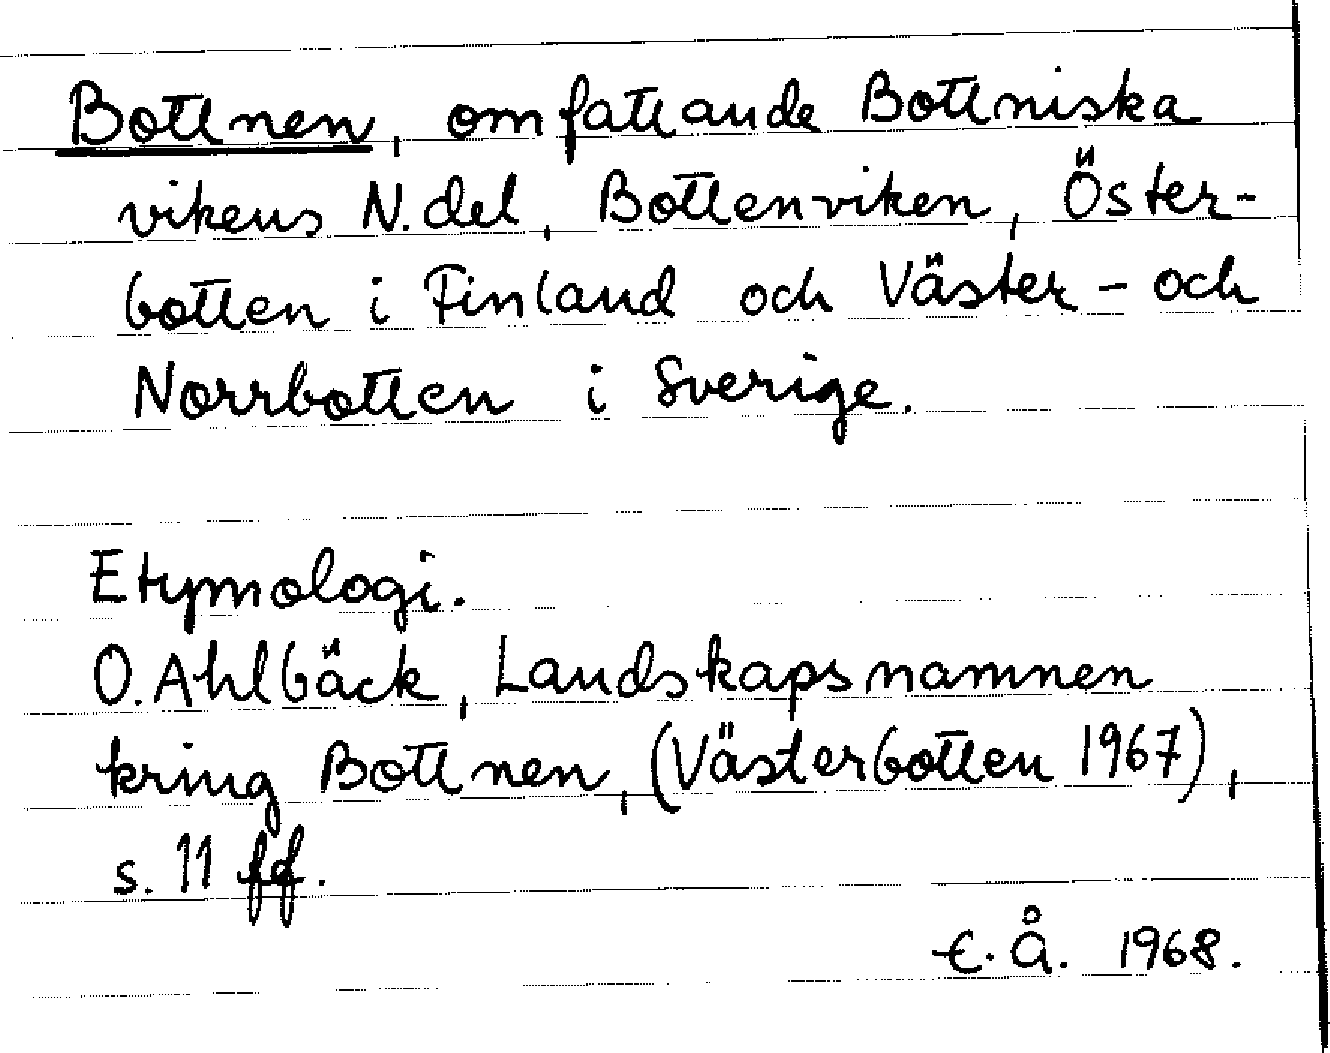 Bottnen, omfattande Bottniska
vikens N. del, Bottenviken, Öster-
botten i Finland och Väster- och
Norrbotten i Sverige.
Etymologi.
O. Ahlbäck, Landskapsnamnen
kring Bottnen, (Västerbotten 1967),
s. 11 ff.
E. Å. 1968.